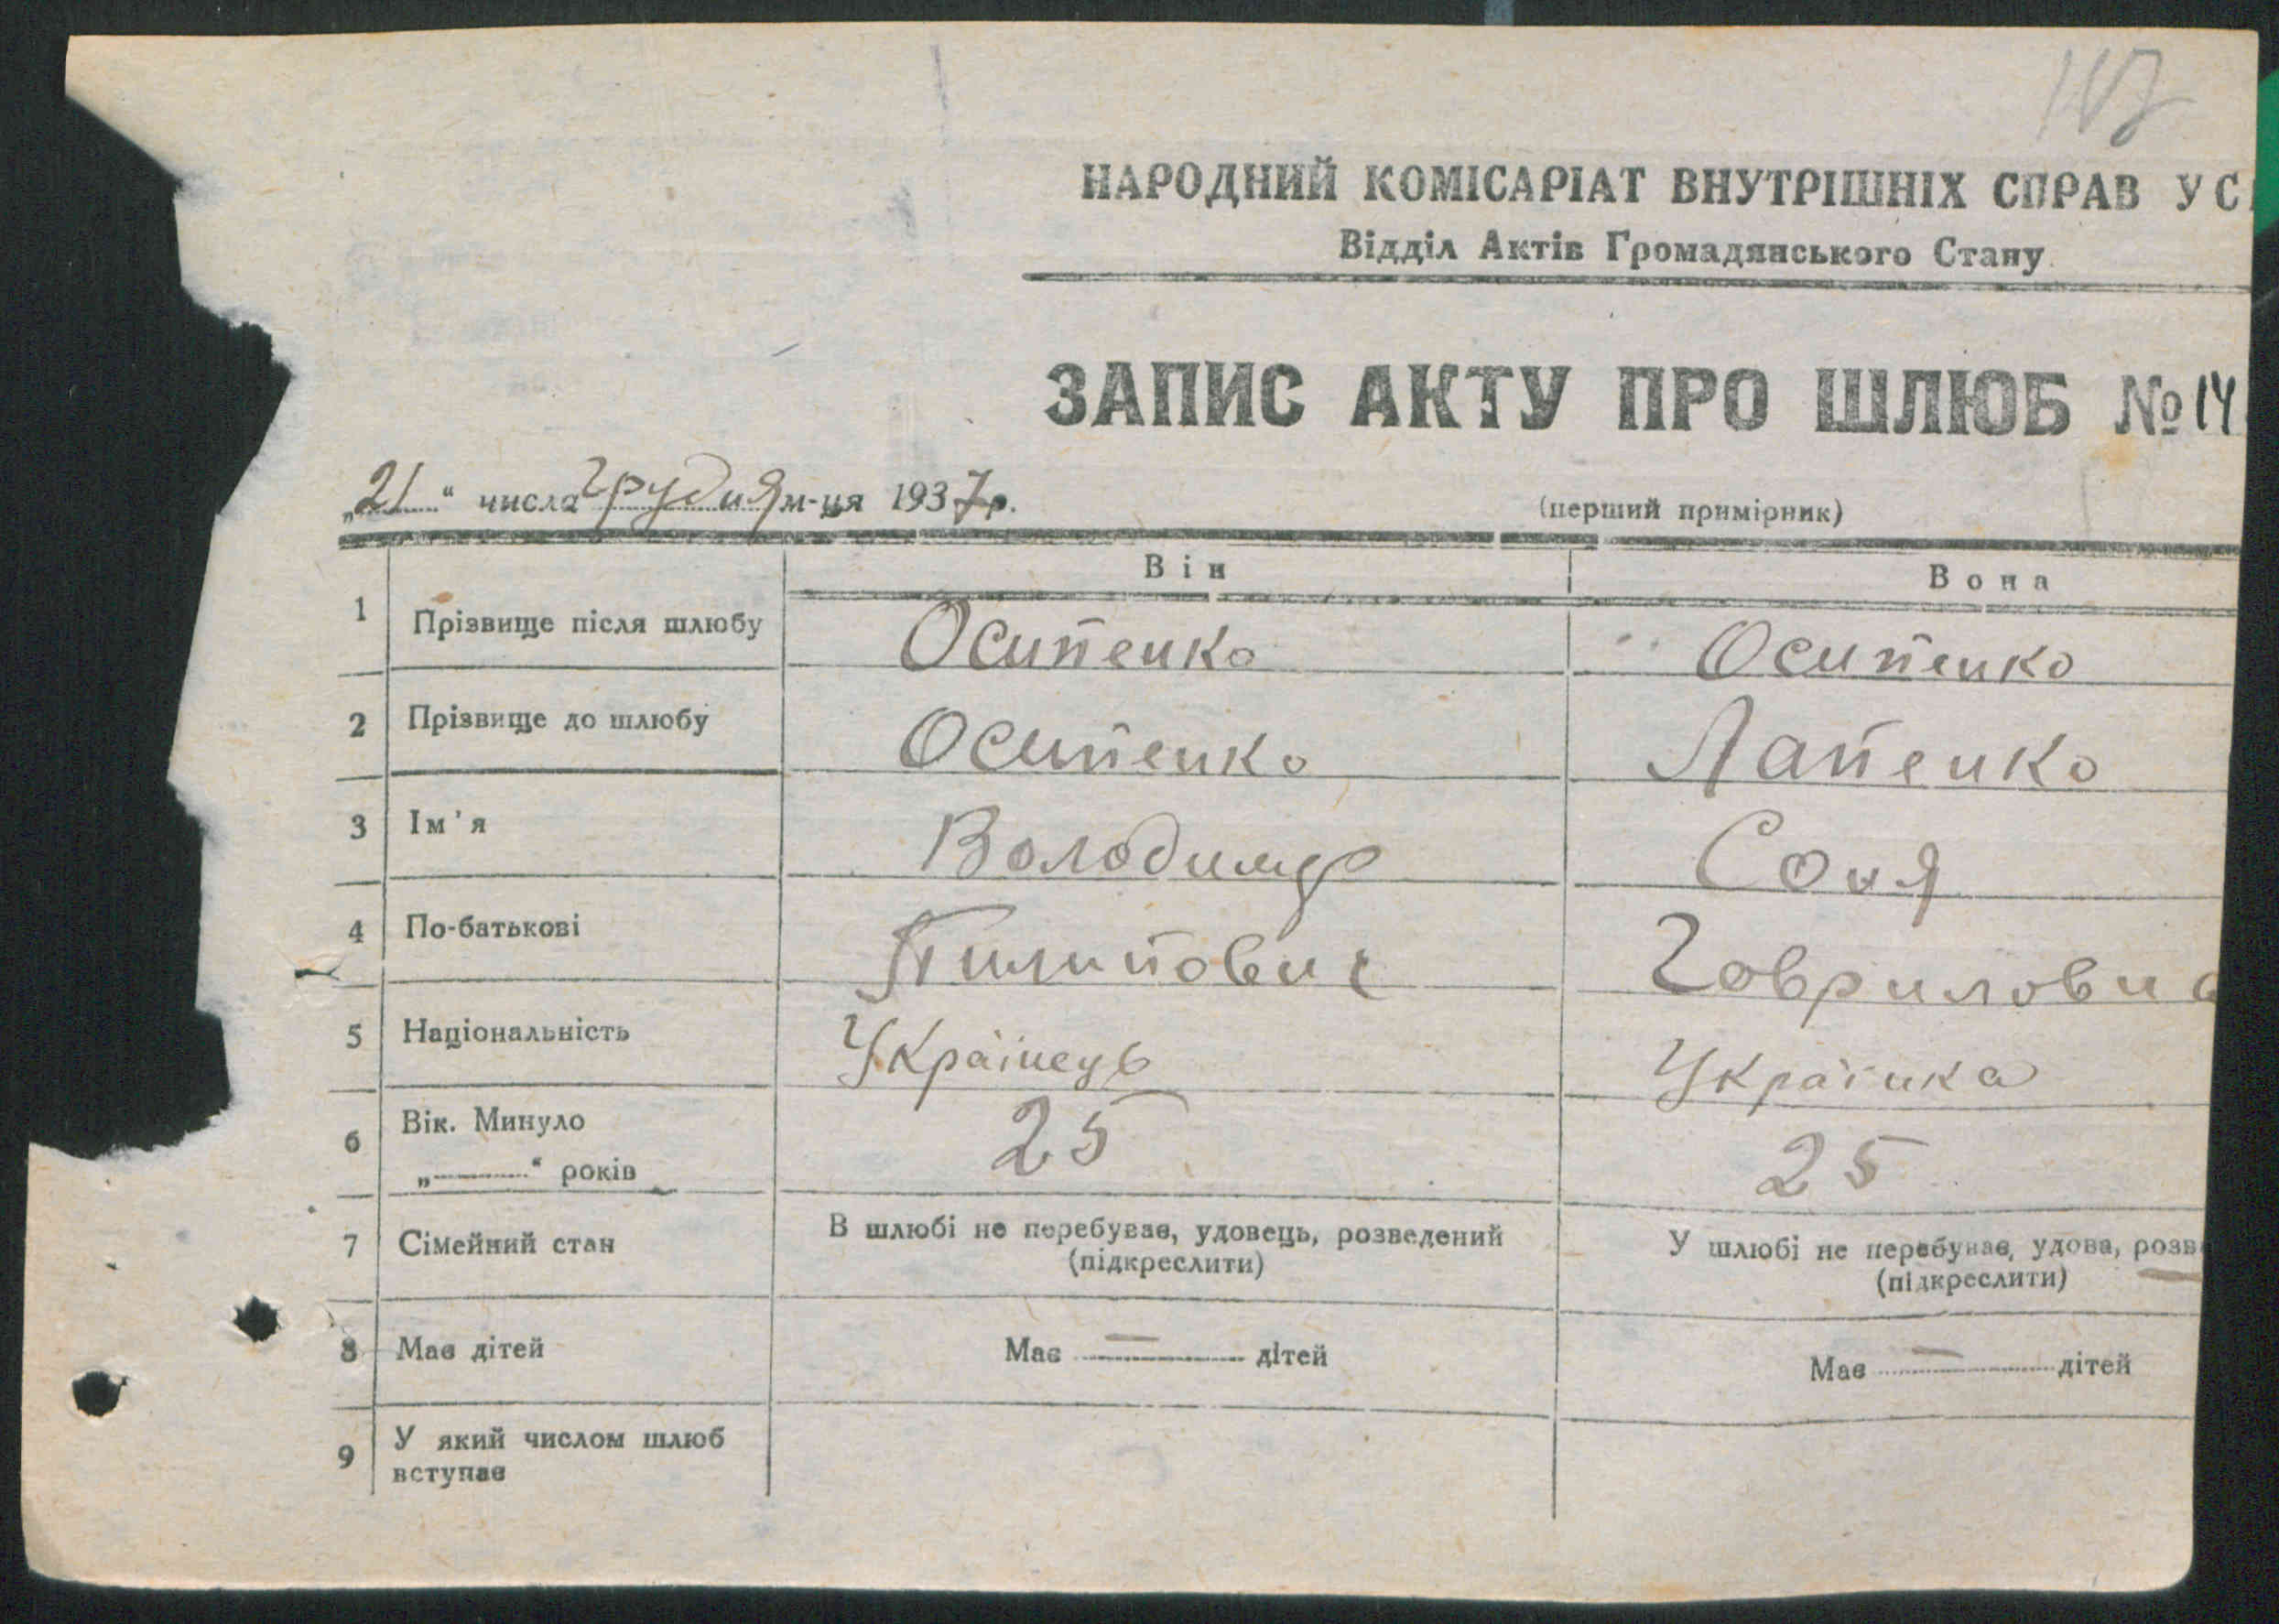 147
НАРОДНИЙ КОМІСАРІАТ ВНУТРІШНІХ СПРАВ УС
Відділ Актів Громадянського Стану
ЗАПИС АКТУ ПРО ШЛЮБ № 14
„21“ числа Грудня м-ця 1937 р.
(перший примірник)
Він Вона
1 Прізвище після шлюбу Осипенко Осипенко
2 Прізвище до шлюбу Осипенко Лапенко
3 Ім'я Володимир Соня
4 По-батькові Пилипович Говриловна
5 Національність Українець Українка
6 Вік. Минуло „——“ років 25 25
7 Сімейний стан В шлюбі не перебуває, удовець, розведений (підкреслити) У шлюбі не перебуває, удова, розв (підкреслити)
8 Має дітей Має — дітей Має — дітей
9 У який числом шлюб
вступає